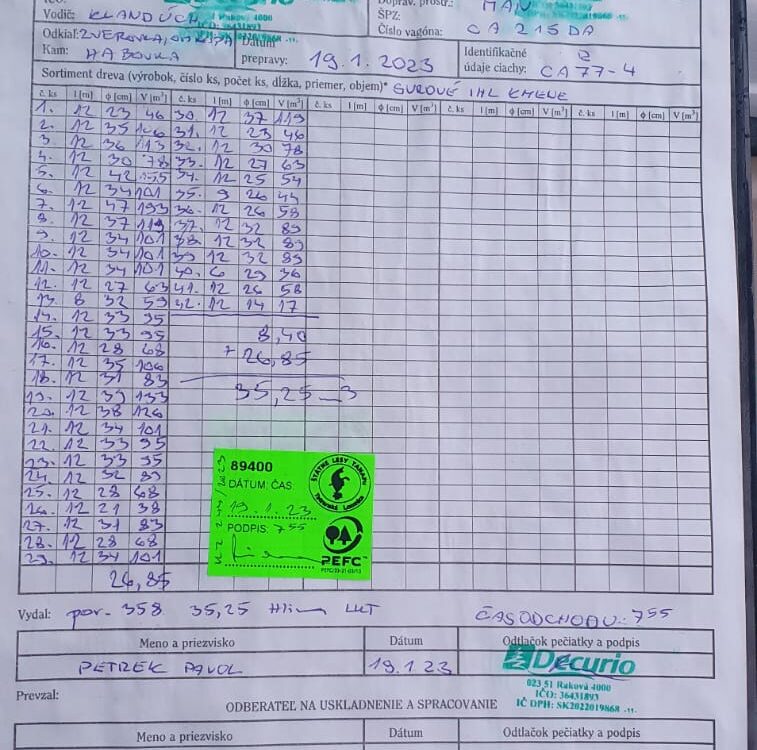 IČO:
Vodič: KLANDUCH
Raková 4000
IČO: 36431893
Doprav. prostr.: MAN
ŠPZ:
Číslo vagóna: CA 215 DA
Odkiaľ: ZVEROVKA,
Kam: HABOVKA
Dátum
prepravy: 19.1.2023
Identifikačné
údaje ciachy: CA 77-4
Sortiment dreva (výrobok, číslo ks, počet ks, dĺžka, priemer, objem)* SUROVÉ IHL KMENE
č. ks l [m] ϕ [cm] V [m³] č. ks l [m] ϕ [cm] V [m³] č. ks l [m] ϕ [cm] V [m³] č. ks l [m] ϕ [cm] V [m³] č. ks l [m] ϕ [cm] V [m³]
1. 12 23 46 30 12 37 119
2. 12 35 106 31. 12 23 46
3. 12 36 113 32. 12 30 78
4. 12 30 78 33. 12 27 63
5. 12 42 155 34. 12 25 54
6. 12 34 101 35. 9 26 44
7. 12 47 193 36. 12 26 58
8. 12 37 119 37. 12 32 89
9. 12 34 101 38. 12 32 89
10. 12 34 101 39 12 32 89
11. 12 34 101 40. 6 29 36
12. 12 27 63 41. 12 26 58
13. 8 32 59 42. 12 14 17
14. 12 33 95
15. 12 33 95 8,40
16. 12 28 68
17. 12 35 106 + 26,85
18. 12 31 83
19. 12 39 133 35,25 3
20. 12 38 126
21. 12 34 101
22. 12 33 95
23. 12 33 95
24. 12 32 89
25. 12 28 68
26. 12 21 38
27. 12 31 83
28. 12 28 68
29. 12 34 101
26,85
89400
DÁTUM: ČAS:
19.1.23
PODPIS: 755
ŠTÁTNE LESY TANAPU
Tatranská Lomnica
PEFC
Vydal: por- 358 35,25 LKT
ČAS ODCHODU: 755
Meno a priezvisko Dátum Odtlačok pečiatky a podpis
PETREK PAVOL 19.1.23
Decurio
023 51 Raková 4000
IČO: 36431893
IČ DPH: SK2022019868 -11-
Prevzal:
ODBERATEĽ NA USKLADNENIE A SPRACOVANIE
Meno a priezvisko Dátum Odtlačok pečiatky a podpis